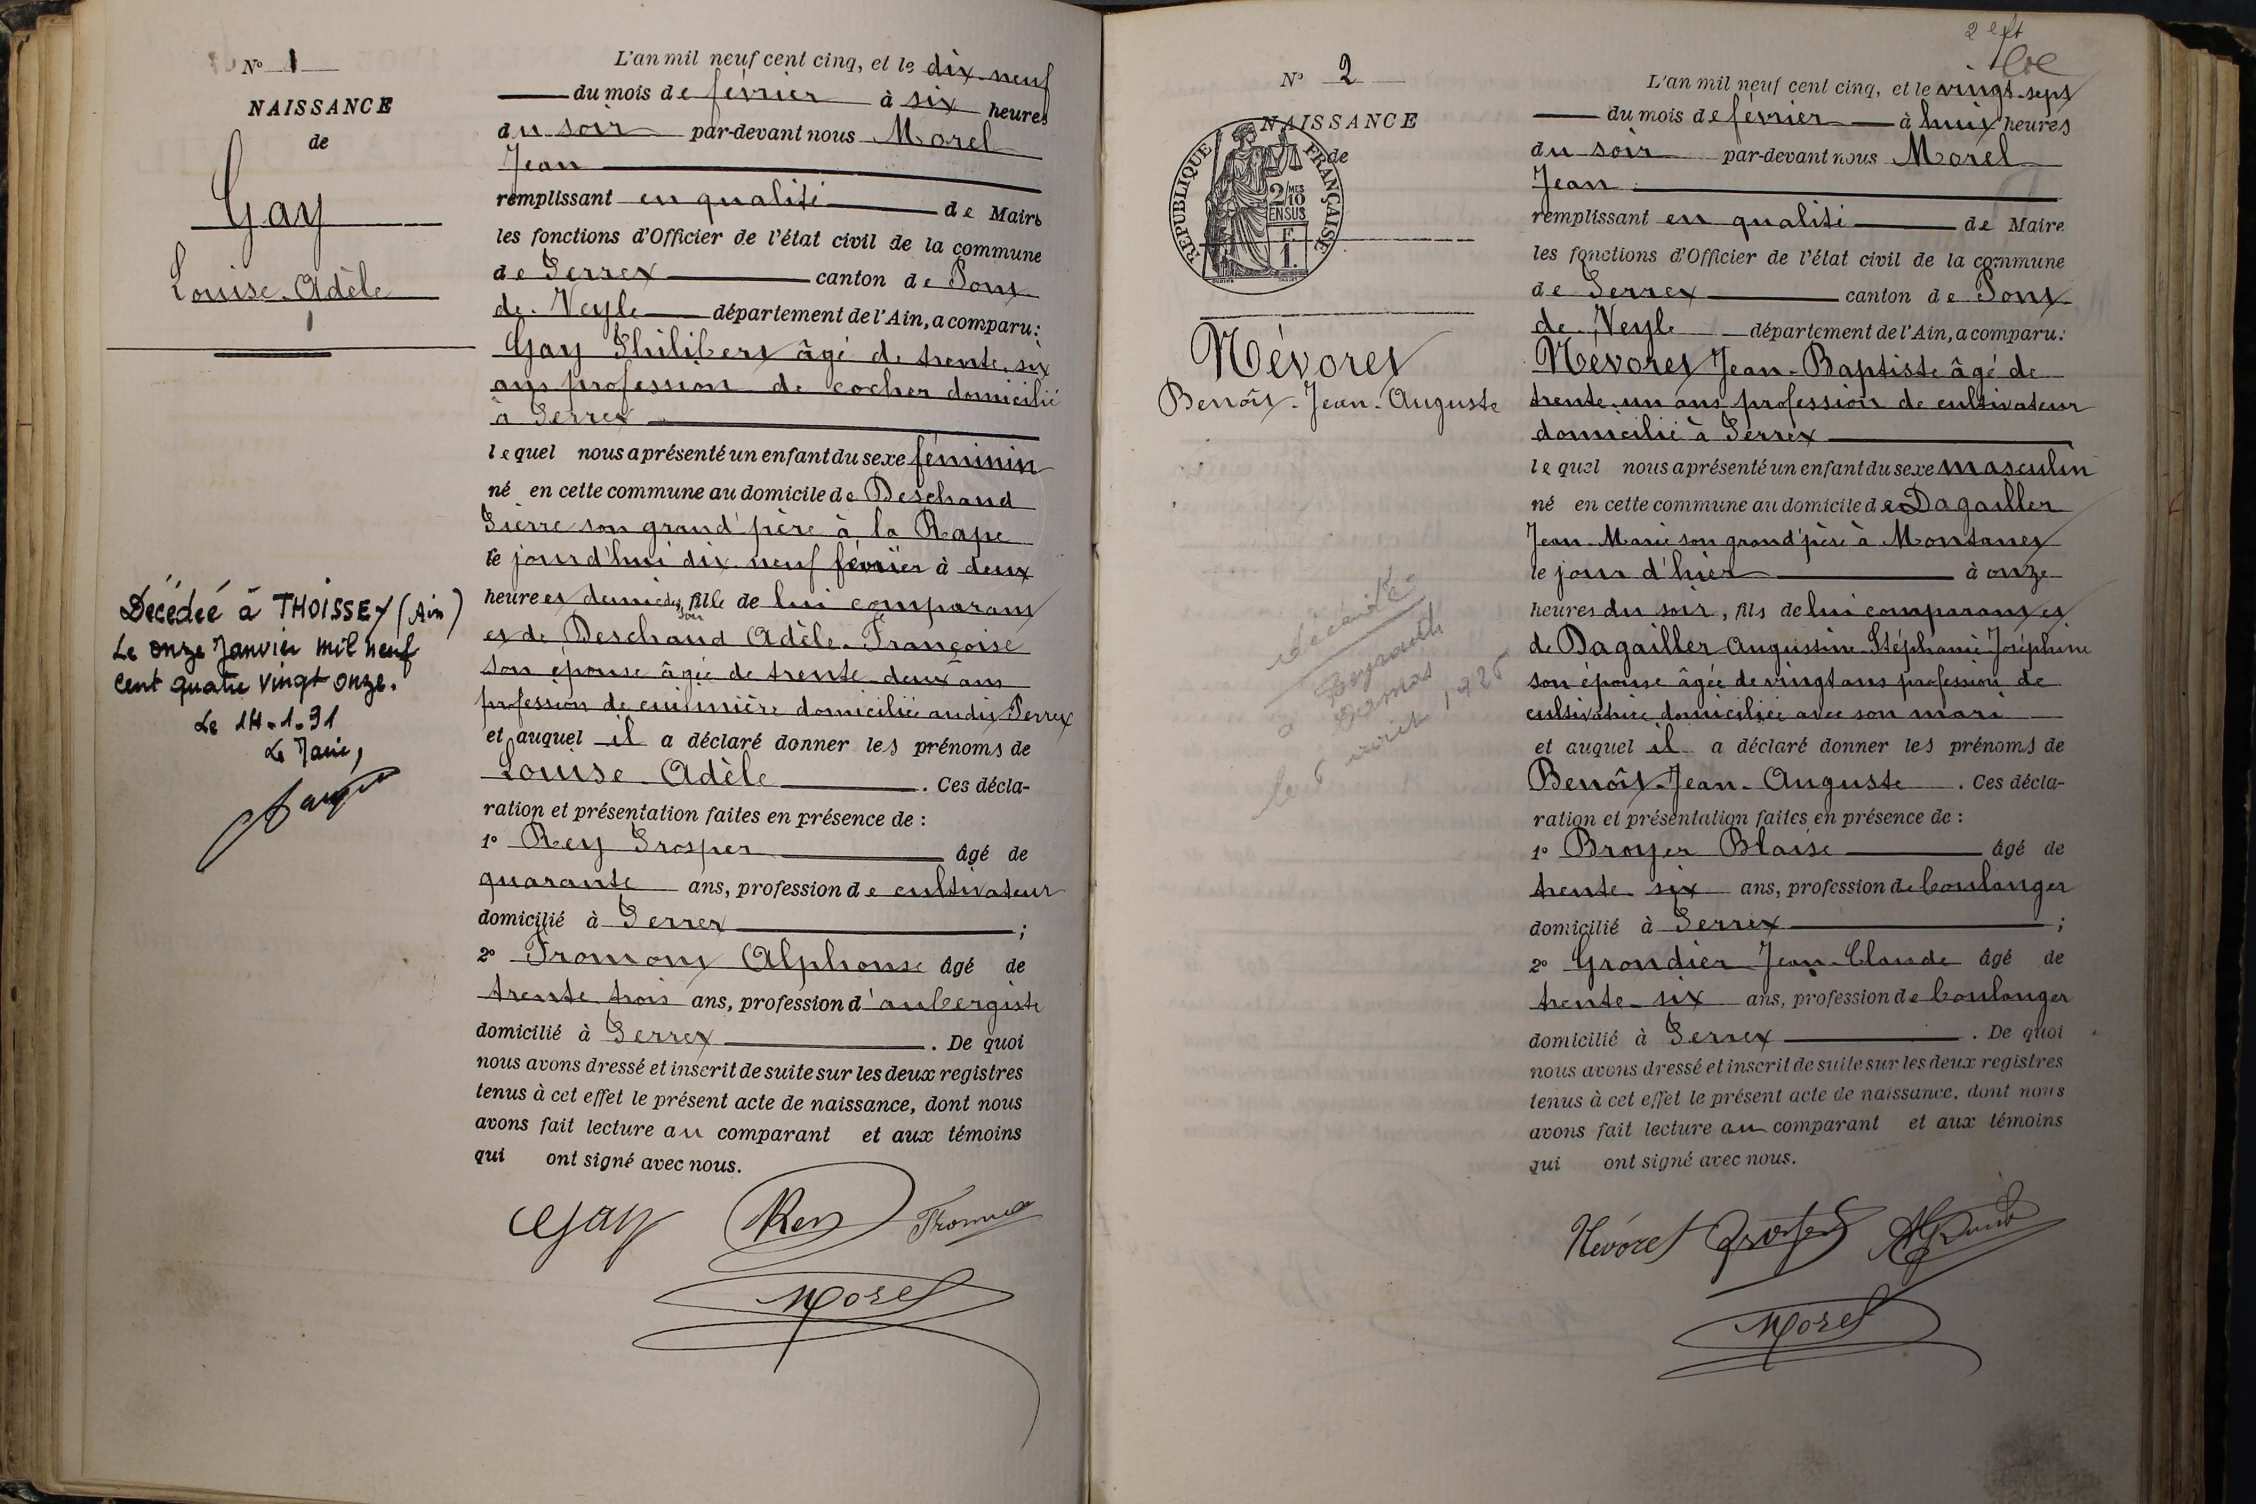 N° 1
NAISSANCE
de
Gay
Louise-Adèle
Décédée à THOISSEY (Ain)
Le onze Janvier mil neuf
cent quatre vingt onze.
Le 14-1-91
Le Maire,
L'an mil neuf cent cinq, et le dix-neuf
du mois de février à six heures
du soir par-devant nous Morel
Jean
remplissant en qualité de Maire
les fonctions d'Officier de l'état civil de la commune
de Perrex canton de Pont
de Veyle département de l'Ain, a comparu:
Gay Philibert âgé de trente-six
ans profession de cocher domicilié
à Perrex
lequel nous a présenté un enfant du sexe féminin
né en cette commune au domicile de Deschand
Pierre son grand'père à la Rape
le jourd'hui dix neuf février à deux
heure et demie du soir, fille de lui comparant
et de Deschand Adèle-Françoise
son épouse âgée de trente-deux ans
profession de cuisinière domiciliée audit Perrex
et auquel il a déclaré donner les prénoms de
Louise Adèle. Ces décla-
ration et présentation faites en présence de :
1° Rey Prosper âgé de
quarante ans, profession de cultivateur
domicilié à Perrex ;
2° Fromont Alphonse âgé de
trente trois ans, profession d'aubergiste
domicilié à Perrex. De quoi
nous avons dressé et inscrit de suite sur les deux registres
tenus à cet effet le présent acte de naissance, dont nous
avons fait lecture au comparant et aux témoins
qui ont signé avec nous.
Gay Rey Fromont
Morel
2
N° 2
NAISSANCE
de
REPUBLIQUE FRANÇAISE
2/10MES
EN SUS
F.
1.
Névoret
Benoît-Jean-Auguste
décédé
à
le 5 1925
L'an mil neuf cent cinq, et le vingt-sept
du mois de février à huit heures
du soir par-devant nous Morel
Jean
remplissant en qualité de Maire
les fonctions d'Officier de l'état civil de la commune
de Perrex canton de Pont
de Veyle département de l'Ain, a comparu:
Névoret Jean-Baptiste âgé de
trente-un ans profession de cultivateur
domicilié à Perrex
lequel nous a présenté un enfant du sexe masculin
né en cette commune au domicile de Dagailler
Jean-Marie son grand'père à Montanet
le jour d'hier à onze
heures du soir, fils de lui comparant et
de Dagailler Augustine-Stéphanie Joséphine
son épouse âgée de vingt ans profession de
cultivatrice domiciliée avec son mari
et auquel il a déclaré donner les prénoms de
Benoît-Jean-Auguste. Ces décla-
ration et présentation faites en présence de :
1° Broyer Blaise âgé de
trente-six ans, profession de boulanger
domicilié à Perrex ;
2° Grondier Jean-Claude âgé de
trente-six ans, profession de boulanger
domicilié à Perrex. De quoi
nous avons dressé et inscrit de suite sur les deux registres
tenus à cet effet le présent acte de naissance, dont nous
avons fait lecture au comparant et aux témoins
qui ont signé avec nous.
Névoret Broyer
Morel